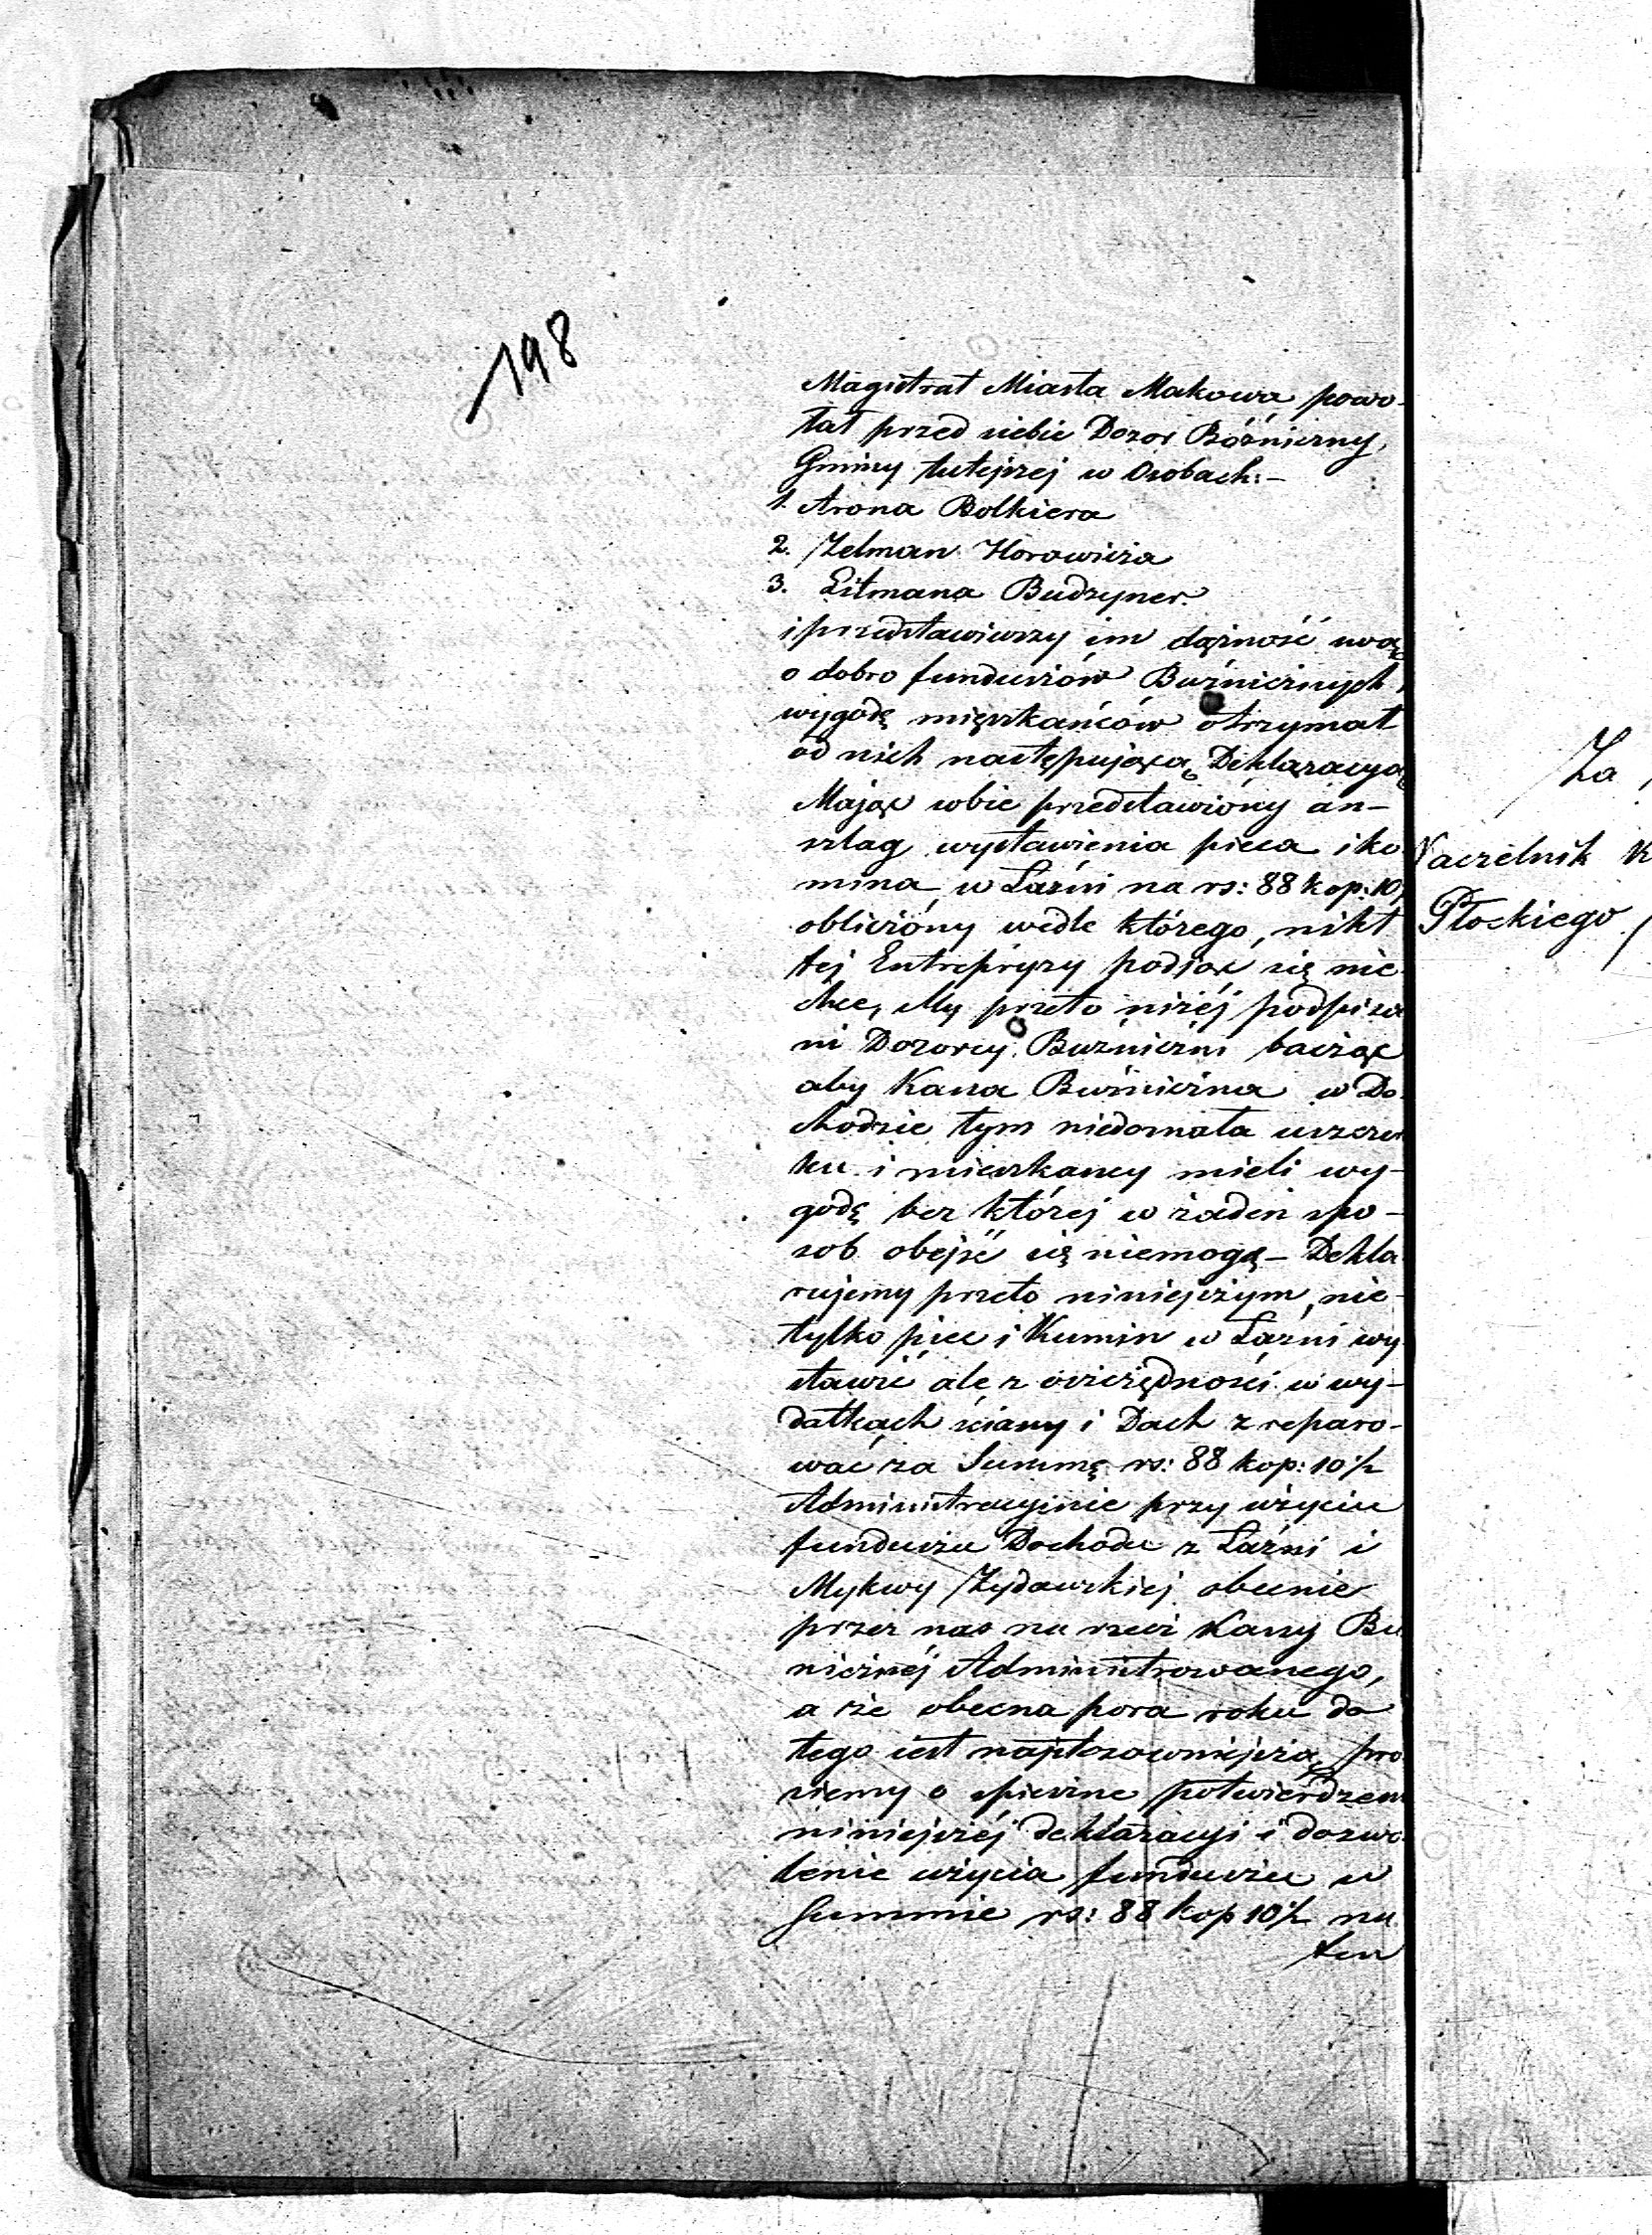 198
Magistrat Miasta Makowa powo-
łał przed siebie Dozor Bóżniczny
Gminy tutejszej w Osobach:-
1. Arona Bolkiera
2. Zelman Horowicza
3. Litmana Budzyner.
i przedstawiwszy im dążność swą
o dobro funduszów Bużnicznych,
wygodę mięszkańców otrzymał
od nich następującą Deklaracyą
Mając sobie przedstawióny an-
szlag wystawienia pieca i ko-
mina w Łaźni na rs: 88 kop: 10
obliczóny wedle którego, nikt
tej Entrepryzy podjąć się nie
chce, My przeto niżéj podpisa
ni Dozorcy Bużniczni bacząc
aby Kassa Bużniczna w Do-
chodzie tym niedoznała uszczer
ku i mieszkancy mieli wy-
godę bez której w żaden spo-
sob obejść się niemogą - Dekla
rujemy przeto niniejszym, nie-
tylko piec i Kumin w Łaźni wy
stawić ale z oszczędności w wy-
datkach ściany i Dach zreparo-
wać za Summę rs: 88 kop: 10 1/2
Administracyjnie przy użyciu
funduszu Dochodu z Łaźni i
Mykwy Żydowskiej obecnie
przez nas na rzecz Kassy Bu
nicznéj Administrowanego,
a że obecna pora roku do
tego iest najstosowniejszą, pro
siemy o spieszne potwierdzen
niniejszéj deklaracyi i dozwo
lenie użycia funduszu w
Summie rs: 88 kop 10 1/2 na
ten
Za
Naczelnik
Płockiego